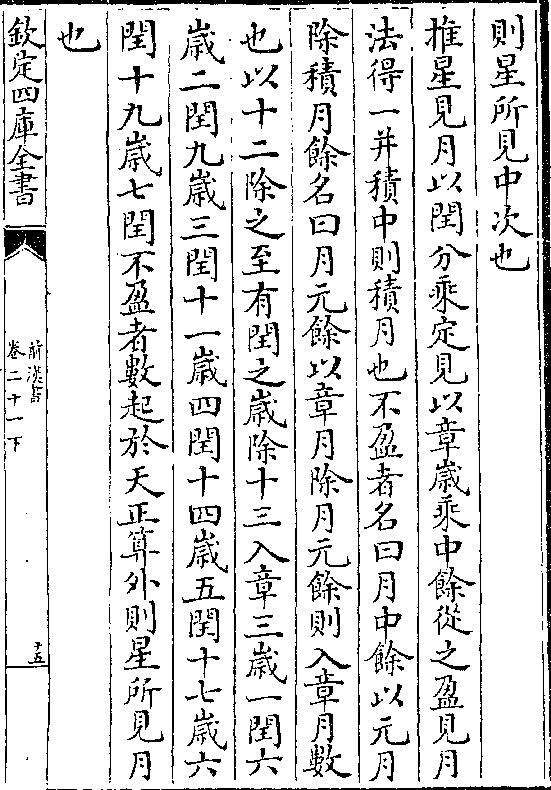 則星所見中次也
推星見月以閏分乘定見以章歳乘中餘從之盈見月
法得一并積中則積月也不盈者名曰月中餘以元月
除積月餘名曰月元餘以章月除月元餘則入章月數
也以十二除之至有閏之歳除十三入章三歳一閏六
歳二閏九歳三閏十一歳四閏十四歳五閏十七歳六
閏十九歳七閏不盈者數起於天正算外則星所見月
也
欽定四庫全書
前漢書
卷二十一下
十五